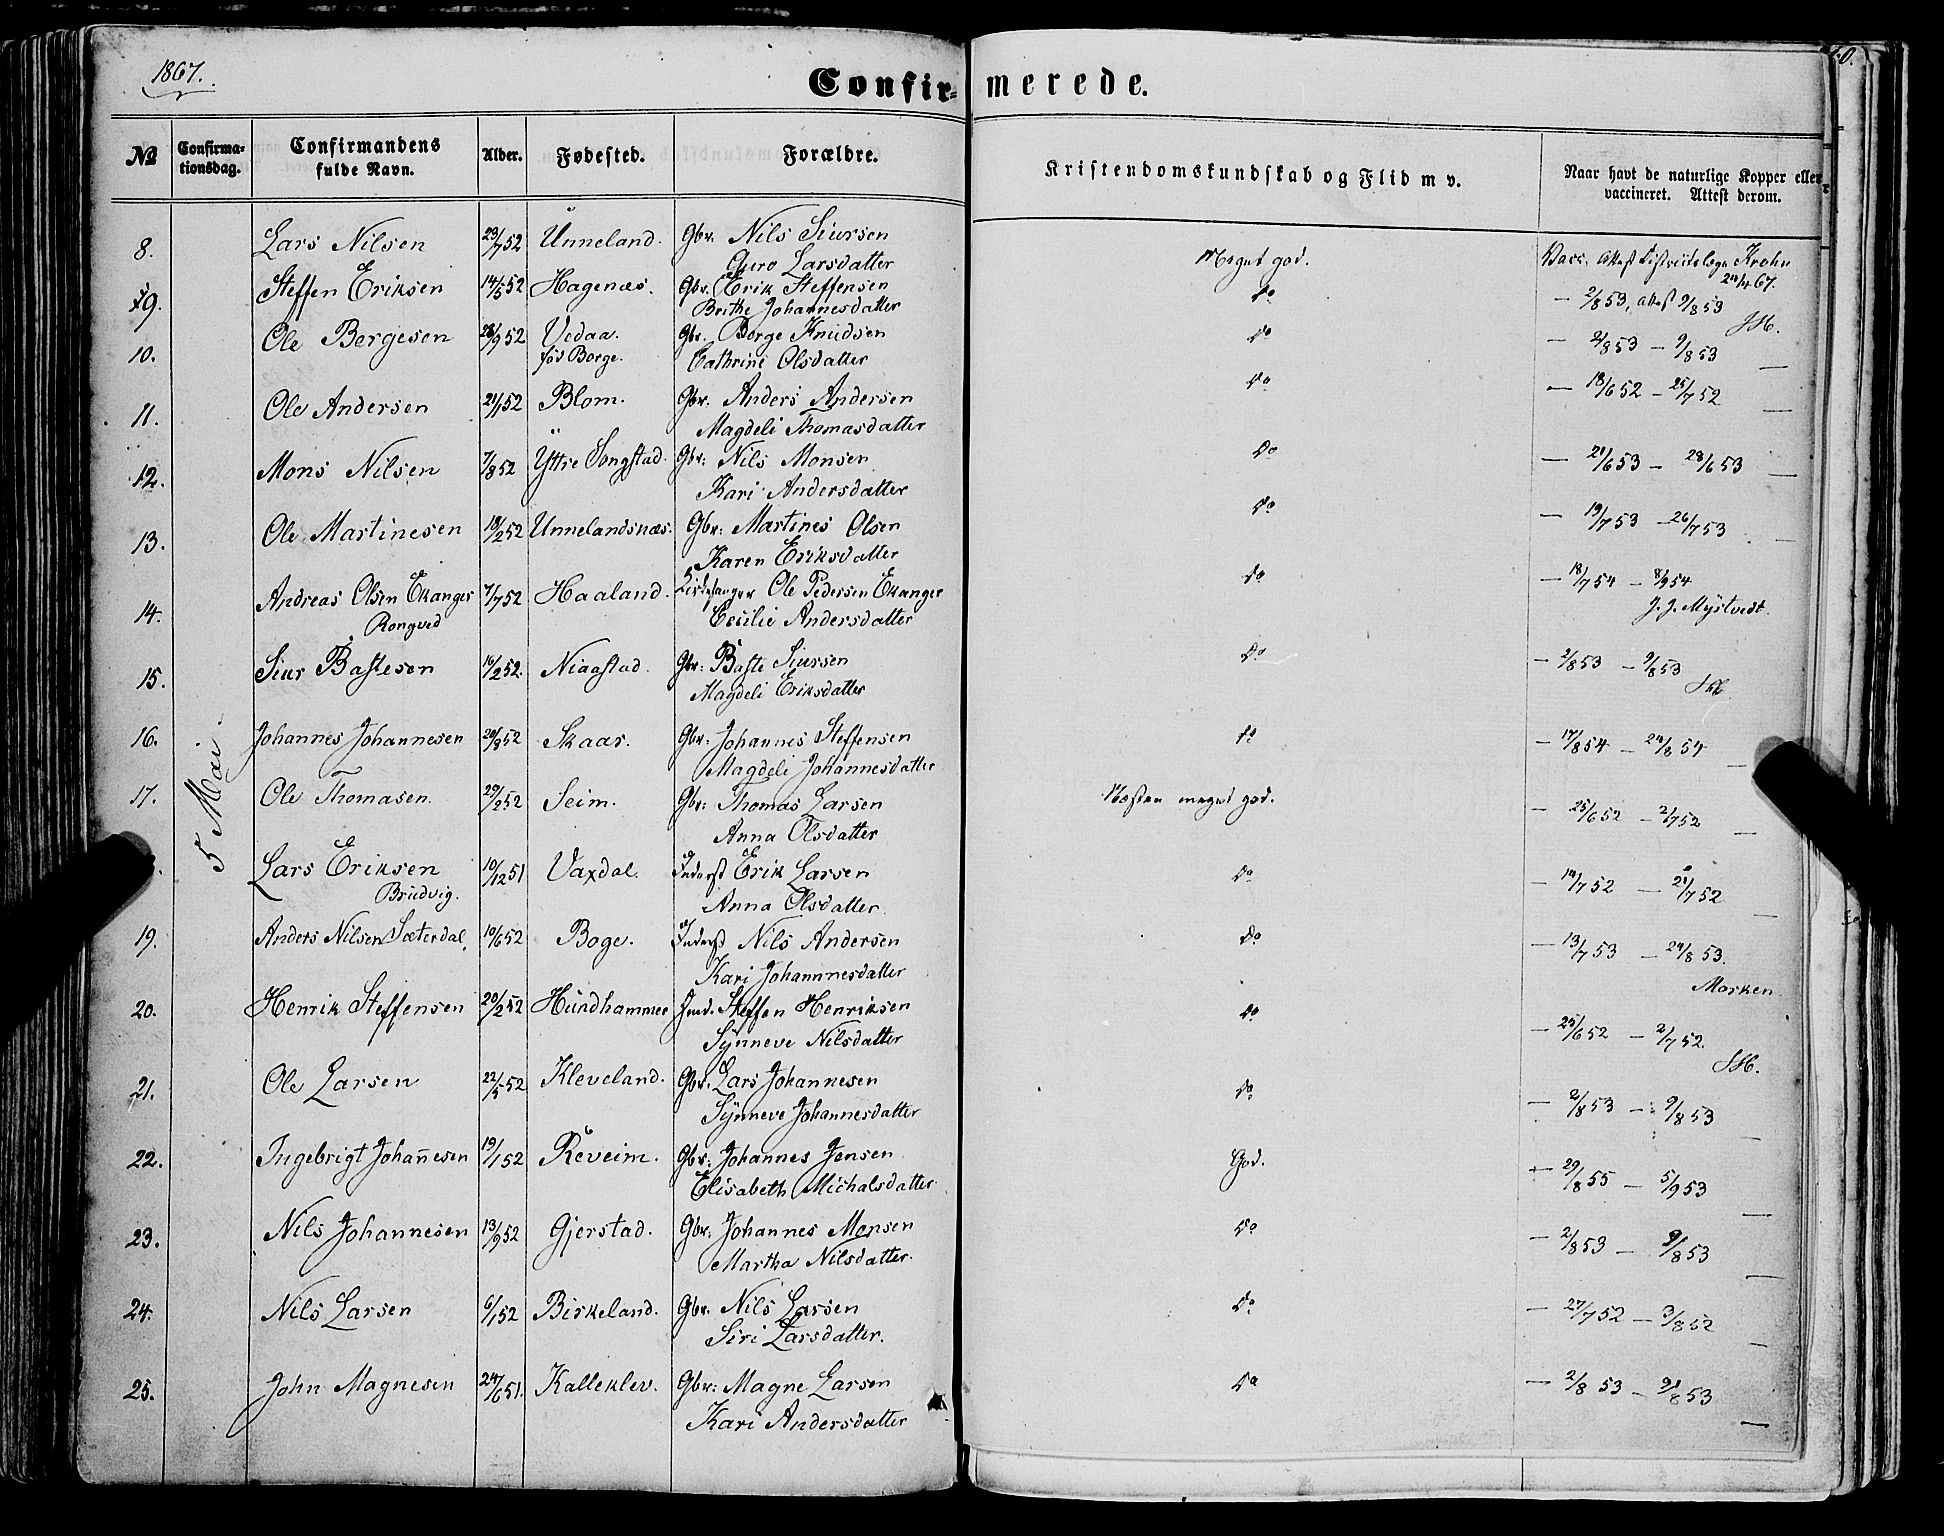 1867.
Confir- merede.
№ Confirma-tionsdag. Confirmandens fulde Navn. Alder. Fødested. Forældre. Kristendomskundskab og Flid m v. Naar havt de naturlige Kopper eller vaccineret. Attest derom.
5 Mai.
8. Lars Nilsen 29/7 52 Unneland. Gbr. Nils Siursen Meget god. Vacc. attest Districtslæge Krohn
Guro Larsdatter 24/4 67.
9. Steffen Eriksen 14/5 52 Hagenæs. Gbr. Erik Steffensen do — 2/8 53, attest 9/8 53
Brithe Johannesdatter
10. Ole Bergesen 28/9 52 Vedaa. Gbr. Berge Knudsen do — 2/8 53 — 9/8 53
fød Borge. Cathrine Olsdatter —
11. Ole Andersen 21/1 52 Blom. Gbr. Anders Andersen do — 18/6 52 — 25/7 52
Magdeli Thomasdatter —
12. Mons Nilsen 7/8 52 Yttre Songstad. Gbr: Nils Monsen do — 21/6 53 — 28/6 53 —
Kari Andersdatter
13. Ole Martinesen 18/2 52 Unnelandsnæs. Gbr: Martines Olsen do — 19/7 53 — 26/7 53
Karen Eriksdatter —
14. Andreas Olsen Ekanger 7/7 52 Haaland. Kirkesanger Ole Pedersen Ekanger do — 18/7 54 — 8/9 54
Rongved Cecilie Andersdatter J. J. Mjøstvedt.
15. Siur Bastesen 16/2 52. Niaastad. Gbr: Baste Siursen do — 2/8 53 — 9/8 53
Magdeli Eriksdatter
16. Johannes Johannesen 20/8 52 Skaar. Gbr: Johannes Steffensen do — 17/8 54 — 24/8 54
Magdeli Johannesdatter —
17. Ole Thomasen 29/2 52 Seim. Gbr: Thomas Larsen Næsten meget god. — 25/6 52 — 2/7 52
Anna Olsdatter —
Lars Eriksen 10/12 51 Vaxdal. Inderst Erik Larsen do — 14/7 52 — 21/7 52
Brudvig. Anna Olsdatter —
19. Anders Nilsen Sæterdal, 10/6 52 Boge. Inderst Nils Andersen do — 13/7 53 — 24/8 53.
Kari Johannnesdatter Morken
20. Henrik Steffensen 20/2 52 Hundhammer Gmd. Steffen Henriksen do — 25/6 52 — 2/7 52.
Synneve Nilsdatter
21. Ole Larsen 22/5 52 Kleveland. Gbr. Lars Johannesen do — 2/8 53 — 9/8 53
Synneve Johannesdatter —
22. Ingebrigt Johan̄esen 19/1 52 Reveim. Gbr: Johannes Jensen God. — 29/8 55 — 5/9 53
Elisabeth Michalsdatter —
23. Nils Johannesen 13/9 52 Gjerstad. Gbr. Johannes Monsen do — 2/8 53 — 9/8 53
Martha Nilsdatter. —
24. Nils Larsen 6/1 52 Birkeland. Gbr. Nils Larsen do — 27/7 52 — 3/8 52
Siri Larsdatter. —
25. John Magnesen 24/6 51. Kalleklev. Gbr: Magne Larsen do — 2/8 53 — 9/8 53
Kari Andersdatter —